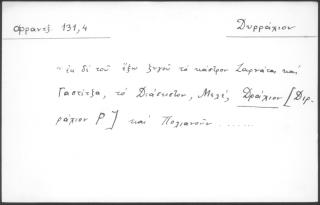 Φραντζ. 131,4
Δυρράχιον
"ἐκ δὲ τοῦ ἔξω ζυγοῦ τὸ κάστρον Ζαρνάτας καὶ
Γαστίτζα, τὸ Διάσειστον, Μελέ, Δράχιον [Διρ-
ράχιον P] καὶ Πολιανοῦν ......